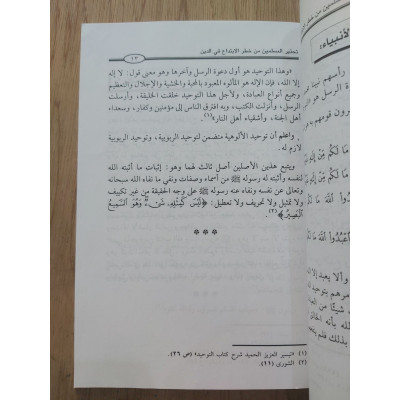 تحذير المسلمين من خطر الابتداع في الدين
١٣
«وهذا التوحيد هو أول دعوة الرسل وآخرها وهو معنى قول: لا إله
إلا الله، فإن الإله هو المألوه المعبود بالمحبة والخشية والإجلال والتعظيم
وجميع أنواع العبادة، ولأجل هذا التوحيد خلقت الخليقة، وأرسلت
الرسل، وأنزلت الكتب، وبه افترق الناس إلى مؤمنين وكفار، وسعداء
أهل الجنة، وأشقياء أهل النار»(١).
واعلم أن توحيد الألوهية متضمن لتوحيد الربوبية، وتوحيد الربوبية
لازم له.
ويتبع هذين الأصلين أصل ثالث لهما وهو: إثبات ما أثبته الله
لنفسه وأثبته له رسوله ﷺ من أسماء وصفات ونفي ما نفاه الله سبحانه
وتعالى عن نفسه ونفاه عنه رسوله ﷺ على وجه الحقيقة من غير تكييف
ولا تمثيل ولا تحريف ولا تعطيل: ﴿لَيْسَ كَمِثْلِهِ شَيْءٌ وَهُوَ السَّمِيعُ
الْبَصِيرُ﴾(٢).
* * *
(١) «تيسير العزيز الحميد شرح كتاب التوحيد» (ص ٣٦).
(٢) الشورى (١١).
الأنبياء: